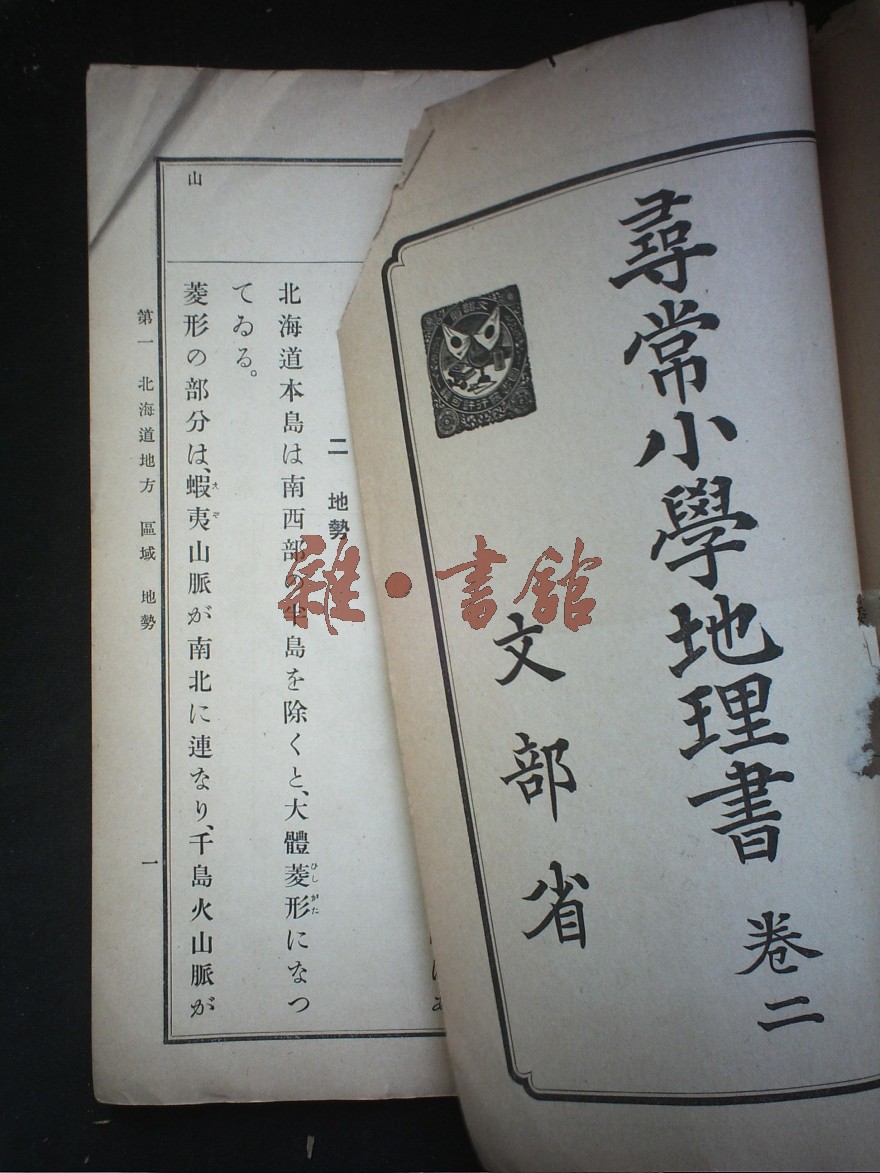 尋常小學地理書 卷二
文部省
二 地勢
北海道本島は南西部の半島を除くと、大體菱形になつ
てゐる。
菱形の部分は、蝦夷山脈が南北に連なり、千島火山脈が
山
第一 北海道地方 區域 地勢
一
雜·書館